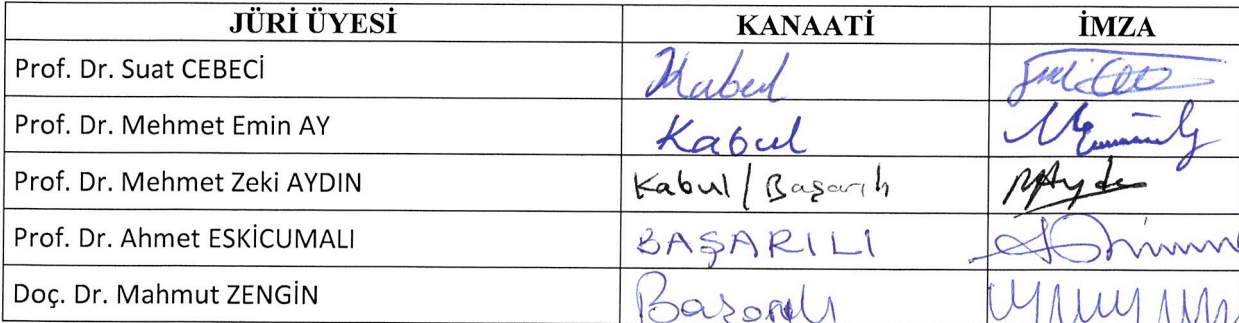 JÜRİ ÜYESİ KANAATİ İMZA
Prof. Dr. Suat CEBECİ Kabul
Prof. Dr. Mehmet Emin AY Kabul
Prof. Dr. Mehmet Zeki AYDIN Kabul / Başarılı
Prof. Dr. Ahmet ESKİCUMALI BAŞARILI
Doç. Dr. Mahmut ZENGİN Başarılı